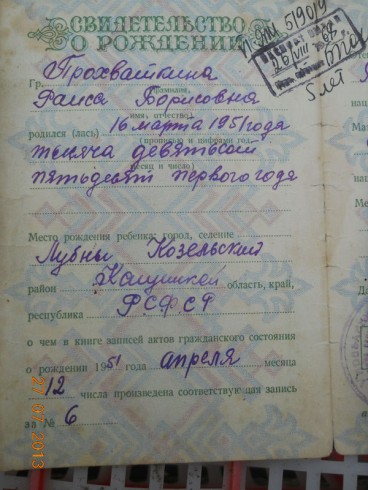 СВИДЕТЕЛЬСТВО
О РОЖДЕНИИ
Гр. Прохваткина
фамилия,
Раиса Борисовна
имя, отчество)
родился (лась) 16 марта 1951 года
(прописью и цифрами год,
тысяча девятьсот
месяц и число)
пятьдесят первого года
Место рождения ребенка: город, селение
Лубны Козельский
район Калужской область, край,
республика РСФСР
о чем в книге записей актов гражданского состояния
о рождении 1951 года апреля месяца
12 числа произведена соответствующая запись
за № 6
5 лет
27 07 2013